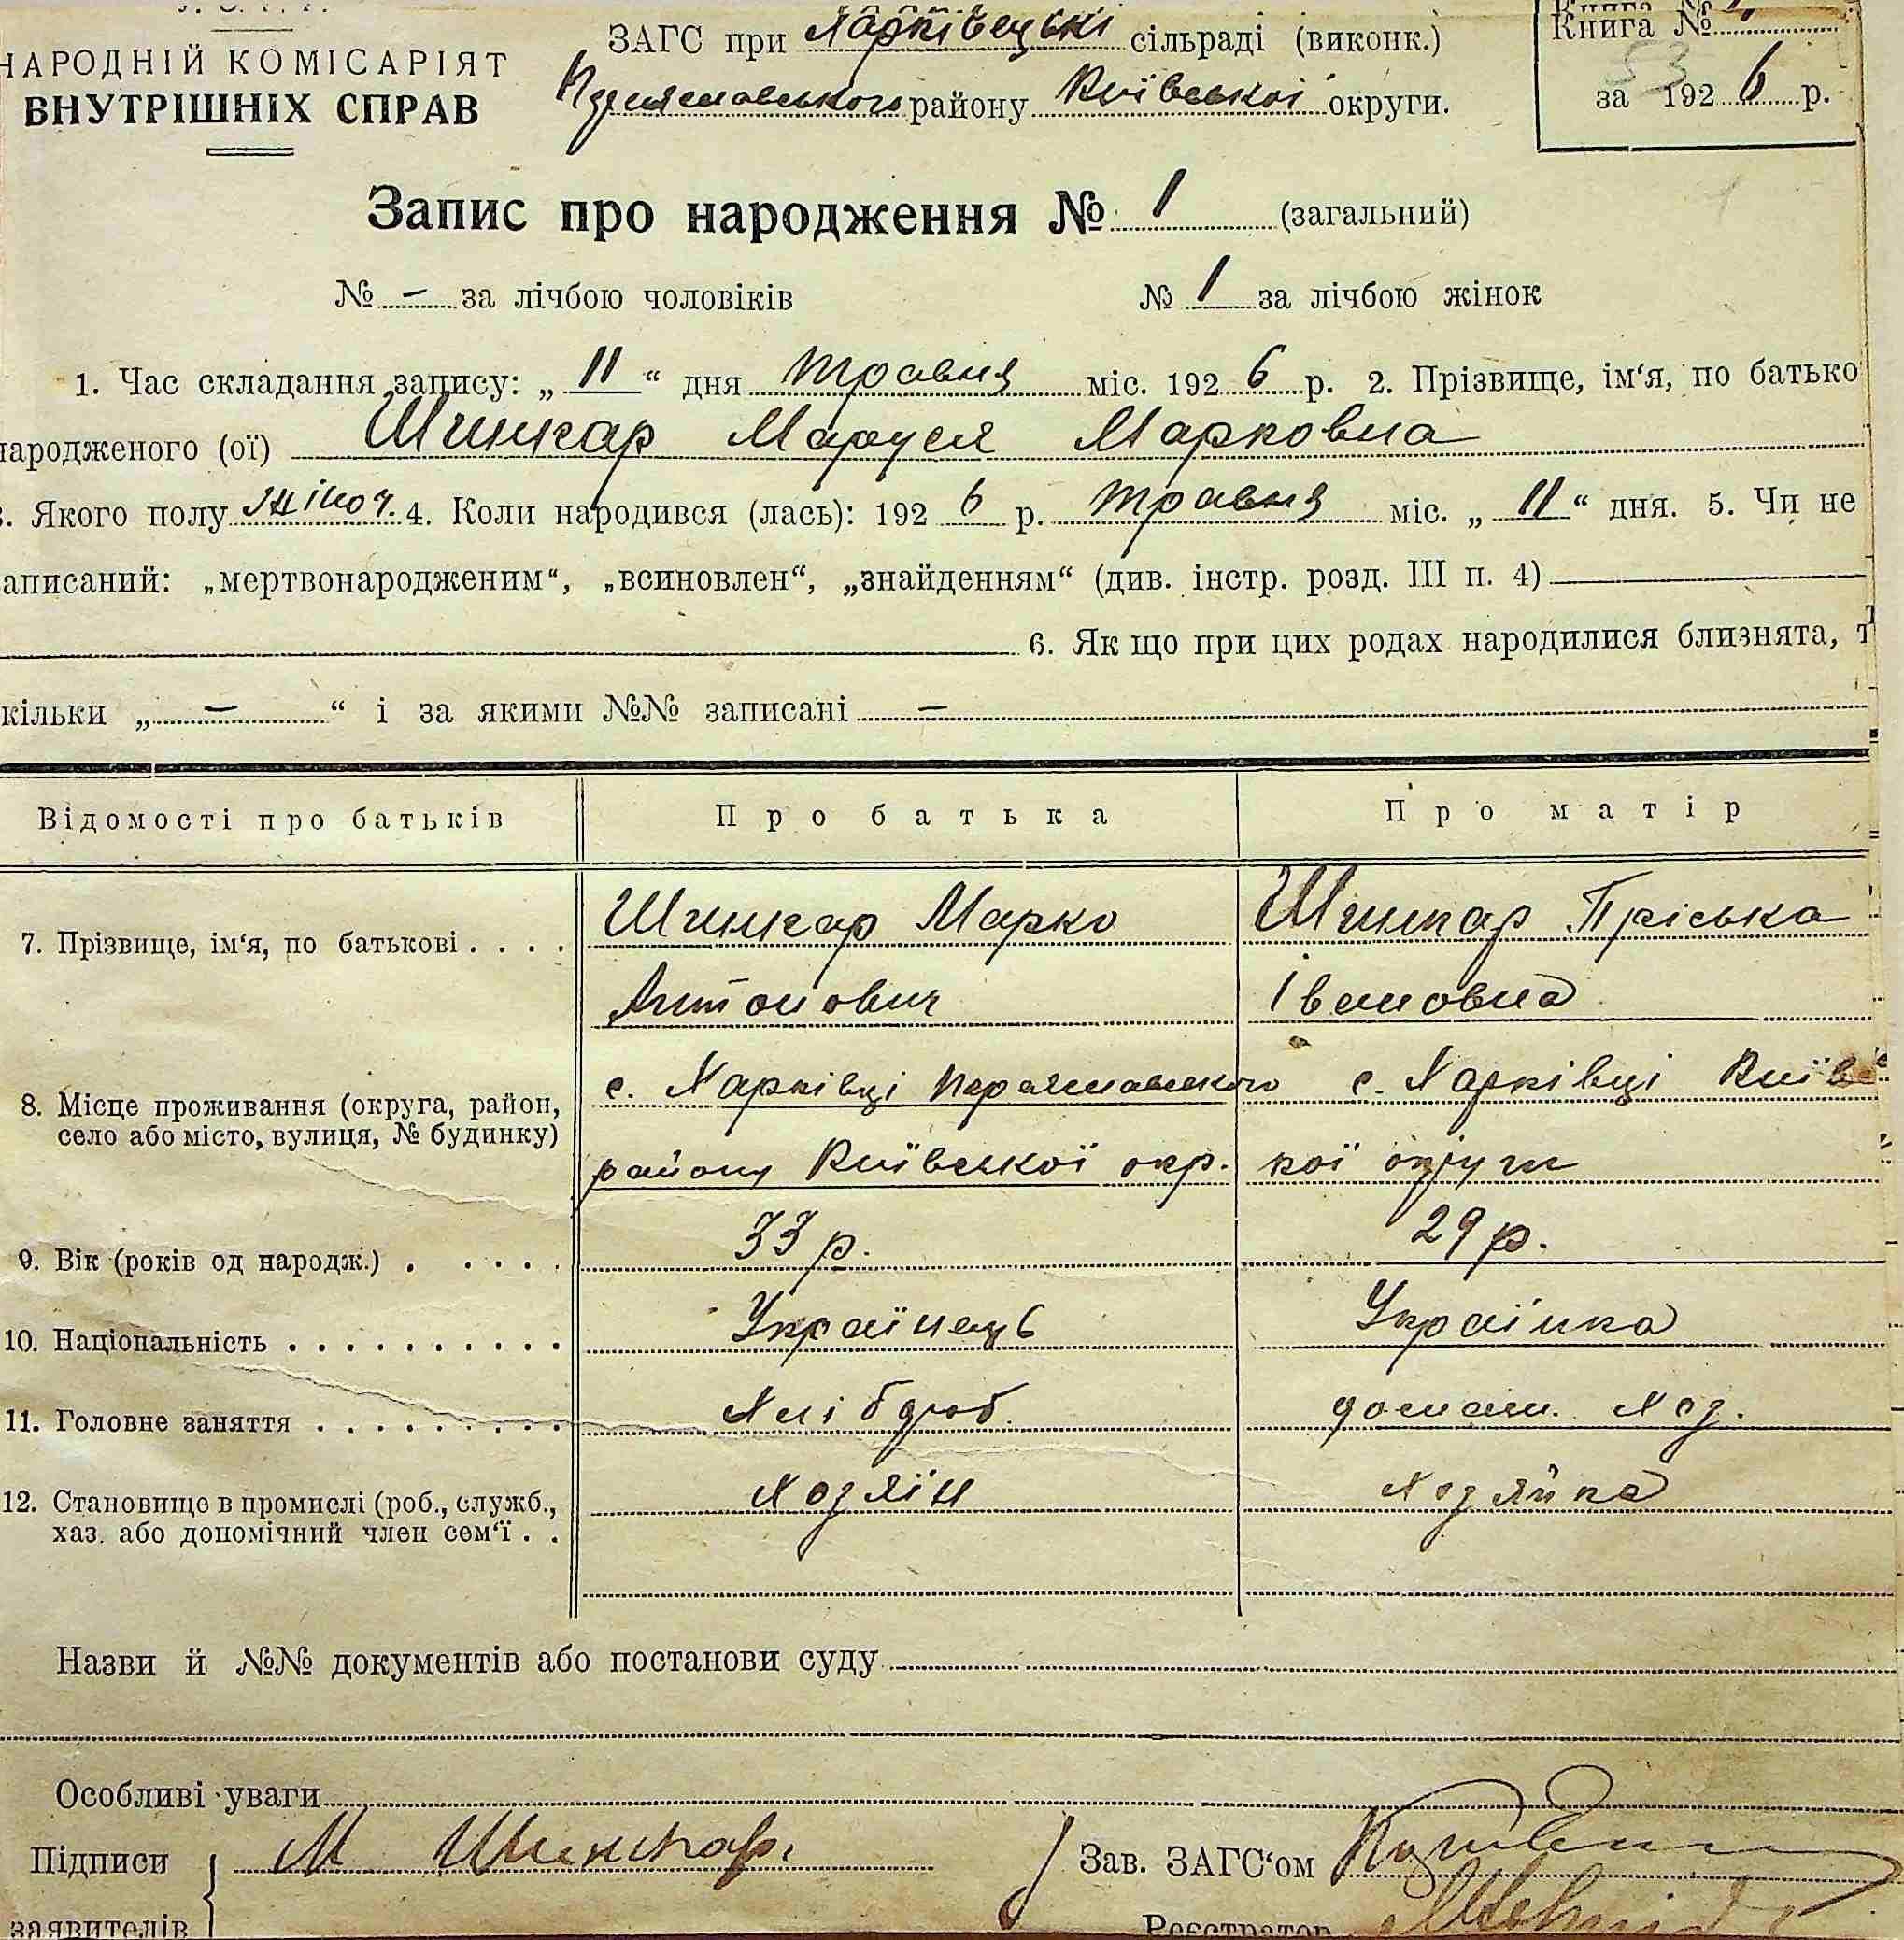 У. С. Р. Р.
НАРОДНІЙ КОМІСАРІЯТ
ВНУТРІШНІХ СПРАВ
ЗАГС при Харківецькі сільраді (виконк.)
Переяславського району Київської округи.
Книга №
53
за 1926 р.
Запис про народження № 1 (загальний)
№ – за лічбою чоловіків № 1 за лічбою жінок
1. Час складання запису: „11“ дня травня міс. 1926 р. 2. Прізвище, ім‘я, по батько
народженого (ої) Шинкар Маруся Марковна
3. Якого полу жіноч. 4. Коли народився (лась): 1926 р. травня міс. „11“ дня. 5. Чи не
записаний: „мертвонародженим“, „всиновлен“, „знайденням“ (див. інстр. розд. III п. 4)
6. Як що при цих родах народилися близнята, т
кільки „–“ і за якими №№ записані –
Відомості про батьків Про батька Про матір
7. Прізвище, ім‘я, по батькові . . . . Шинкар Марко Шинкар Пріська
Антонович Івановна
8. Місце проживання (округа, район, с. Харківці Переяславського с. Харківці Київс
село або місто, вулиця, № будинку) району Київської окр. кої округи
9. Вік (років од народж.) . . . . . 33 р. 29 р.
10. Національність . . . . . . . . . . Українець Українка
11. Головне заняття . . . . . . . . . Хлібороб домаш. хоз.
12. Становище в промислі (роб., служб., Хозяїн Хозяйка
хаз. або допомічний член сем‘ї . .
Назви й №№ документів або постанови суду
Особливі уваги
Підписи М Шинкарь Зав. ЗАГС‘ом
заявителів Реєстратор